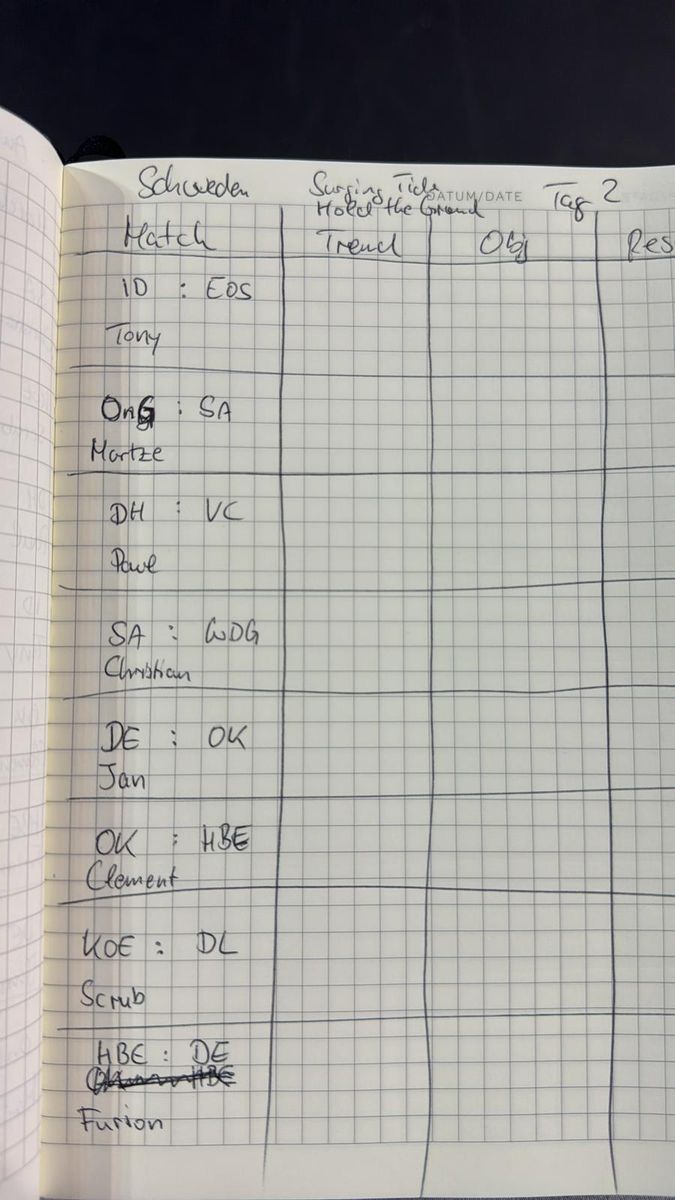 Schweden Surging Tide DATUM/DATE Tag 2
Hold the Ground
Match Trend Obj Res
ID : EOS
Tony
OnG : SA
Matze
DH : VC
Paul
SA : WDG
Christian
DE : OK
Jan
OK : HBE
Clement
KOE : DL
Scrub
HBE : DE
Furion